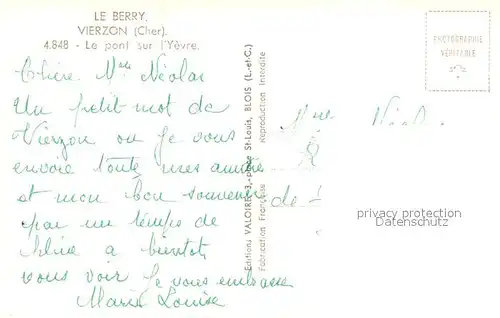 LE BERRY.
VIERZON (Cher).
4.848 - Le pont sur l'Yèvre.
Chère Mme Nicolas
Un petit mot de
Vierzon ou je vous
envoie toute mes amitiés
et mon bon souvenir
par un temps de
a bientôt
vous voir Je vous embrasse
Marie Louise
Editions VALOIRE - 3, place St-Louis, BLOIS (L.-et-C.)
Fabrication Française - Reproduction Interdite
PHOTOGRAPHIE
VÉRITABLE
Mme
de
privacy protection
Datenschutz